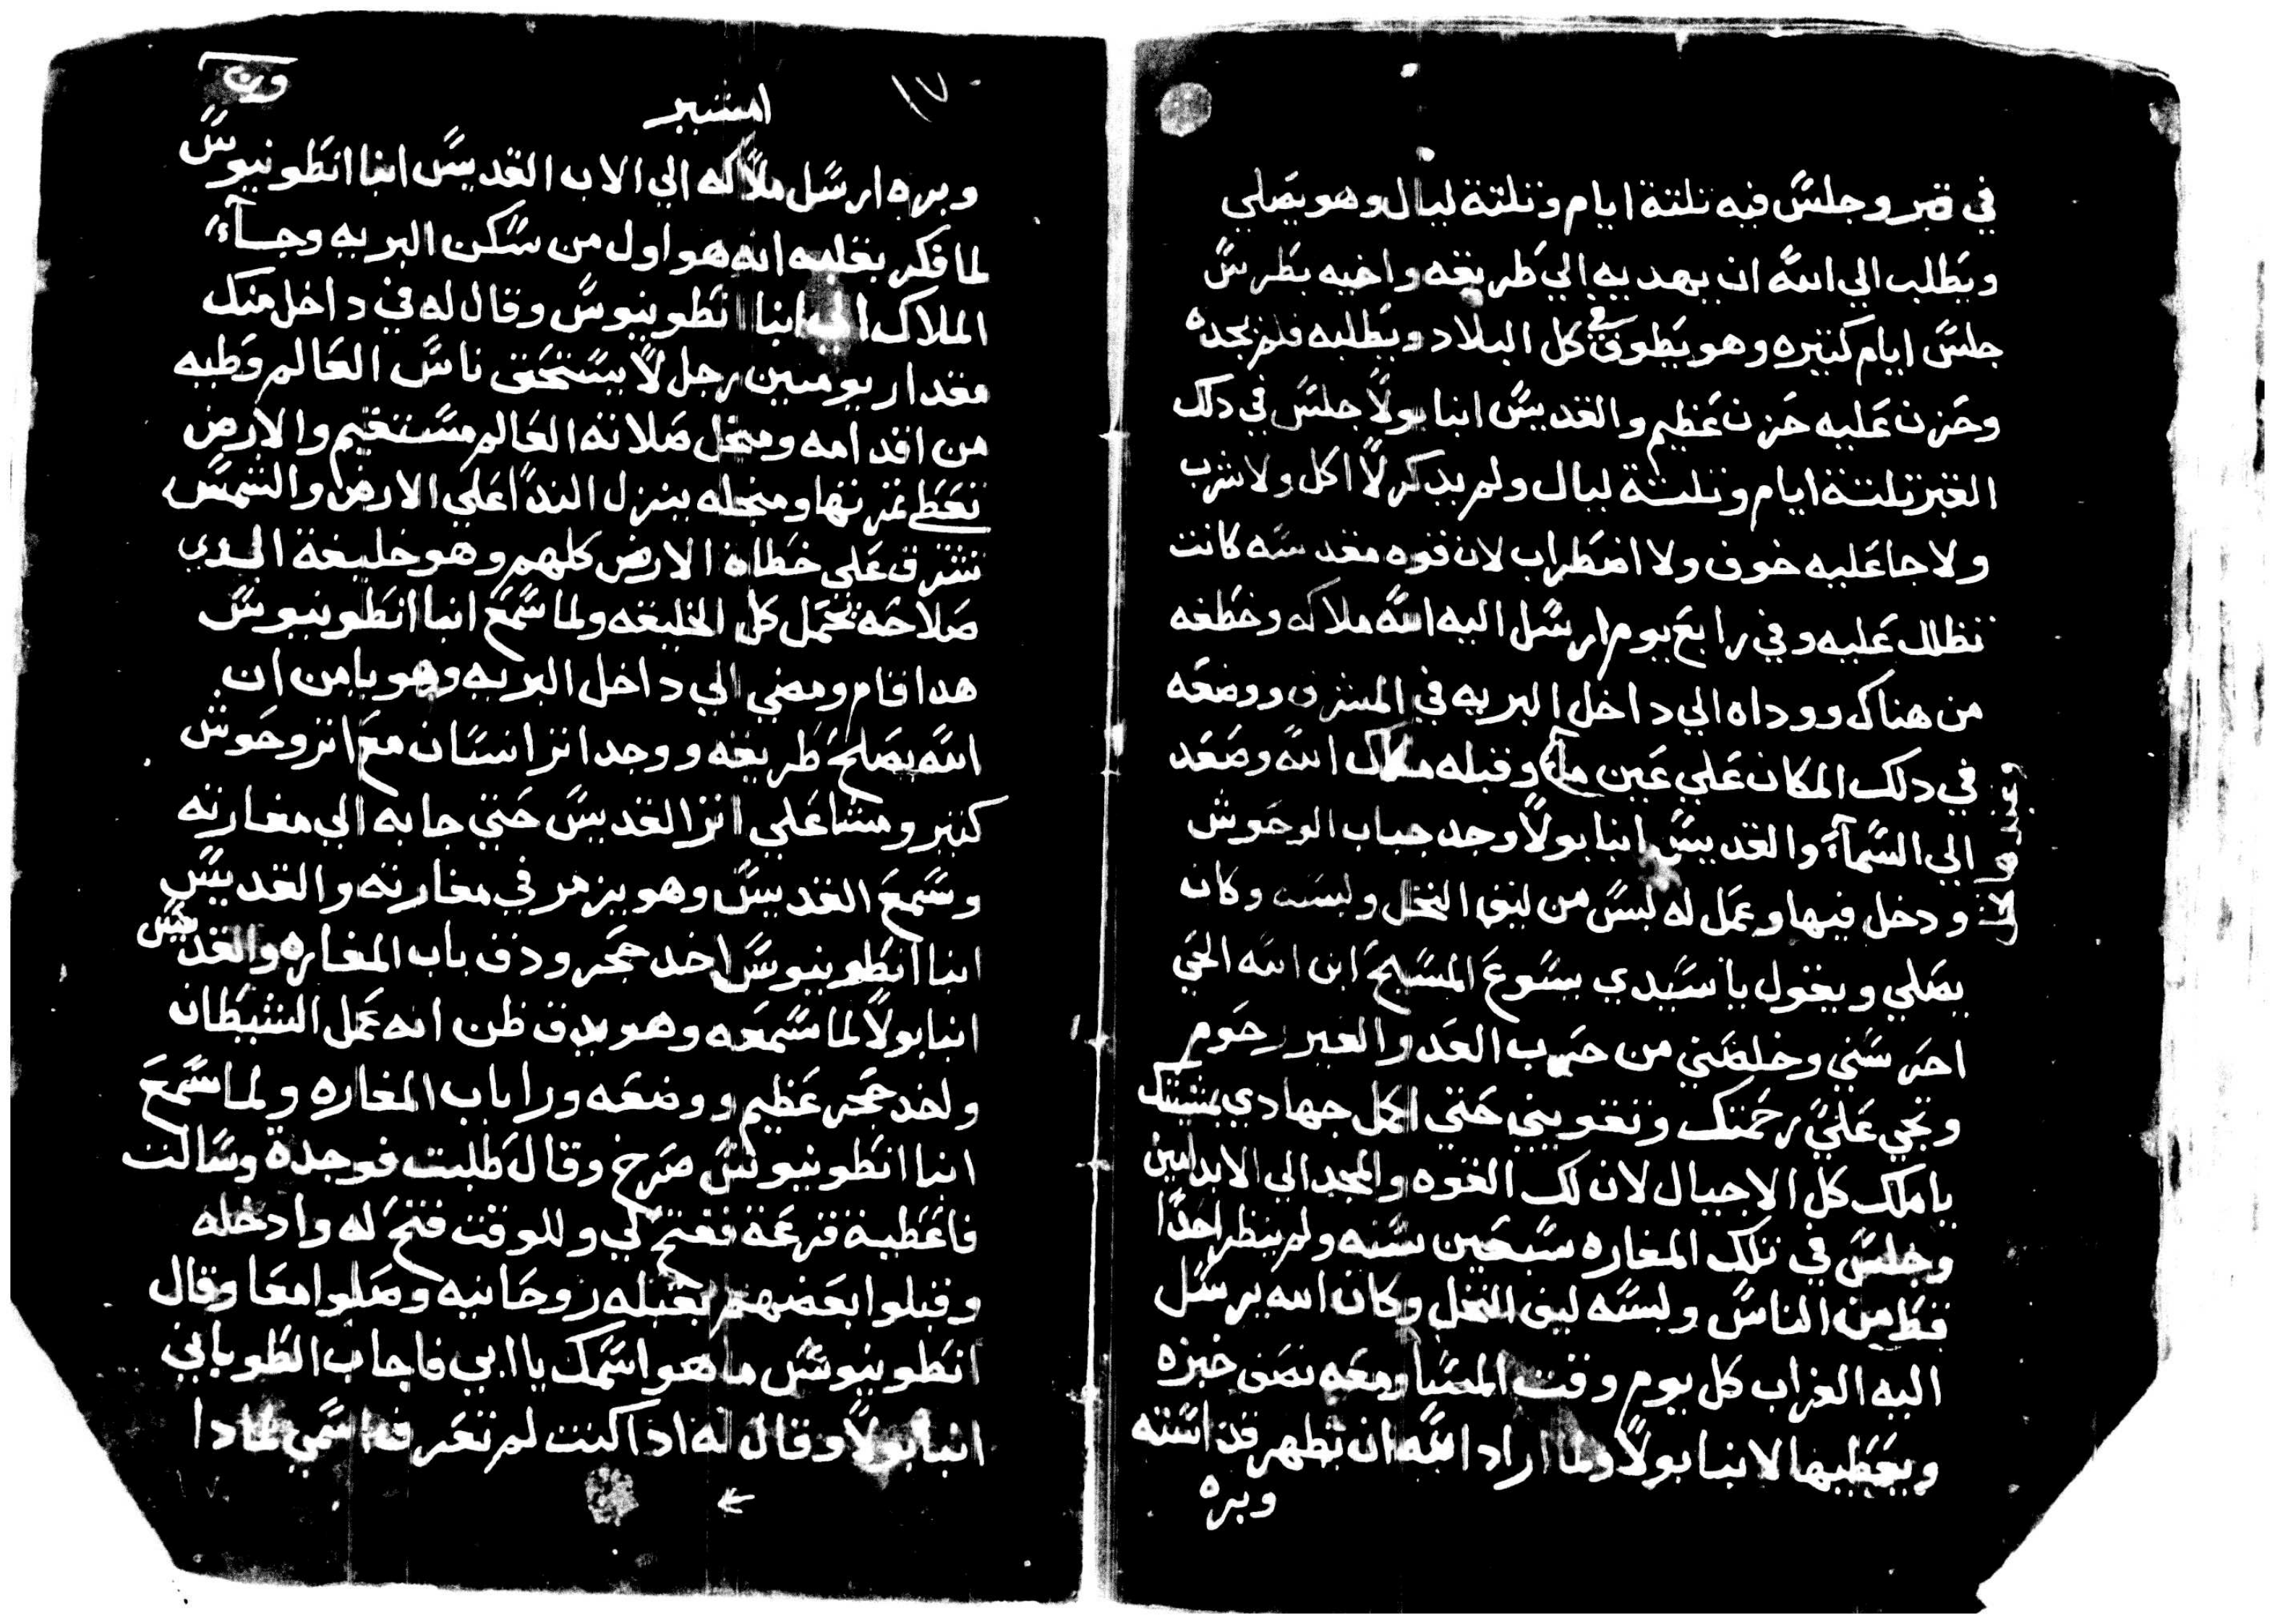 في قبر وجلسَ فيه تلتة ايام وتلتة ليال وهو يصَلي
ويطَلب الي اللَّه ان يهديه الي طَريقه واخيه بطَرسَ
جلسَ ايام كتيره وهو يطَوف في كل البلاد ويطَلبه فلم يجده
وحَزن عَليه حَزن عَظيم والقديسَ انبا بولاً جلسَ في دلك
القبر تلتة ايام وتلتة ليال ولم يدكر لاً اكل ولا شرب
ولا جا عَليه خوف ولا اضطراب لان قوه مقدسَه كانت
تظلل عَليه وفي رابع يوم ارسَل اليه اللَّه ملاكه وخطَفه
من هناك ووداه الي داخل البريه في المشرق ووضعَه
في دلك المكان عَلي عَين مآء وقبله ملاك اللَّه وصَعَد
الي السَمآء والقديسَ انبا بولاً وجد جباب الوحَوش
ودخل فيها وعَمَل له لبسَ من ليف النخل ولبسَه وكان
يصَلي ويقول يا سَيدي يسَوعَ المسَيحَ ابن اللَّه الحَي
احَرسَني وخلصَني من حَرب العَدو الغير رحَوم
وتجي عَليَ رحَمتك وتقويني حَتي اكمل جهادي بمشيتك
يا ملك كل الاجيال لان لك القوه والمجد الي الابد امين
وجلسَ في تلك المغاره سَبعَين سَنه ولم ينظر احَداً
قطَ من الناسَ ولبسَه ليف النخل وكان اللَّه يرسَل
اليه الغراب كل يوم وقت المسَا ومعَه نصَف خبزه
ويعَطَيها لانبا بولاً ولما اراد اللَّه ان تظهر قداسَته
وبره
امشير
١٧
وبره ارسَل ملاَكه الي الاب القديسَ انبا انطَونيوسَ
لما فكر بقلبه انه هو اول من سَكن البريه وجآء
الملاك الي انبا انطَونيوسَ وقال له في داخل منك
مقدار يومين رجل لاً يسَتحَق ناسَ العَالم وطَيه
من اقدامه ومنجل صَلاته العَالم مسَتقيم والارض
تعَطَي تمرتها ومنجله ينزل النداً عَلي الارض والشمسَ
تشرق عَلي خطَاة الارض كلهم وهو خليفة الدي
صَلاحَه تحَمَل كل الخليقه ولما سَمَعَ انبا انطَونيوسَ
هدا قام ومضي الي داخل البريه وهو يامن ان
اللَّه يصَلحَ طَريقه ووجد اتر انسَان معَ اتر وحَوش
كتير ومشا عَلي اتر القديسَ حَتي جا به الي مغارته
وسَمعَ القديسَ وهو يزمر في مغارته والقديسَ
انبا انطَونيوسَ اخد حَجر ودق باب المغاره والقديسَ
انبا بولاً لما سَمعَه وهو يدق ظن انه عَمَل الشيطَان
واخد حَجر عَظيم ووضعَه ورا باب المغاره ولما سَمعَ
انبا انطَونيوسَ صَرخ وقال طَلبت فوجدة وسَالت
فاعَطَية قرعَة ففتحَ لي وللوقت فتحَ له وادخله
وقبلوا بعَضهم بقبله روحَانيه وصَلوا معَا وقال
انطَونيوسَ ما هو اسَمَك يا ابي فاجاب الطَوباني
انبا بولاً وقال له ادا كنت لم تعَرف اسَمَي لمادا